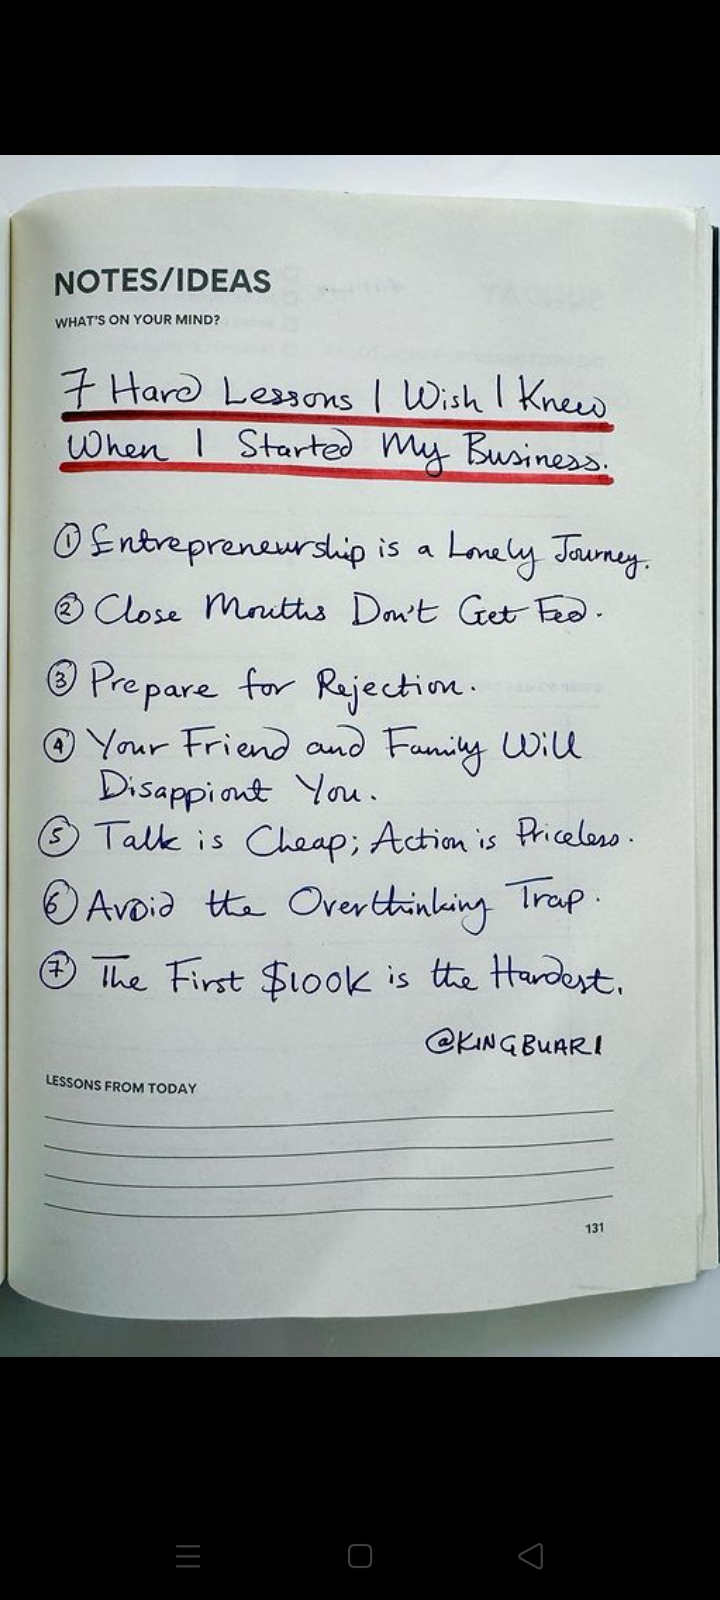 NOTES/IDEAS
WHAT'S ON YOUR MIND?
7 Hard Lessons I Wish I Knew
When I Started My Business.
① Entrepreneurship is a Lonely Journey.
② Close Mouths Don't Get Fed.
③ Prepare for Rejection.
④ Your Friend and Family Will
Disappiont You.
⑤ Talk is Cheap; Action is Priceless.
⑥ Avoid the Overthinking Trap.
⑦ The First $100K is the Hardest.
@KINGBUARI
LESSONS FROM TODAY
131